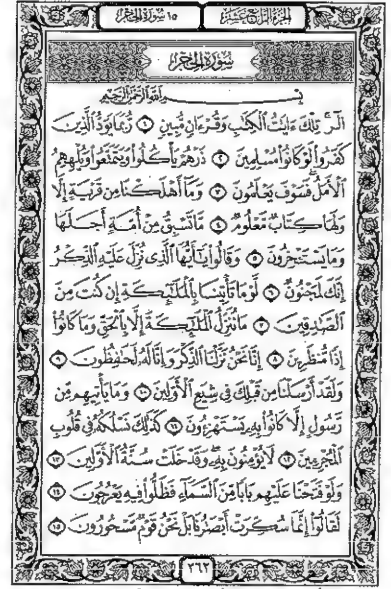 الجزء الرابع عشر
١٥ سورة الحجر
سُورَةُ الحِجْرِ
بِسْمِ اللَّهِ الرَّحْمَٰنِ الرَّحِيمِ
الٓرۚ تِلْكَ ءَايَٰتُ ٱلْكِتَٰبِ وَقُرْءَانٍ مُّبِينٍ ١ رُّبَمَا يَوَدُّ ٱلَّذِينَ
كَفَرُوا۟ لَوْ كَانُوا۟ مُسْلِمِينَ ٢ ذَرْهُمْ يَأْكُلُوا۟ وَيَتَمَتَّعُوا۟ وَيُلْهِهِمُ
ٱلْأَمَلُۖ فَسَوْفَ يَعْلَمُونَ ٣ وَمَآ أَهْلَكْنَا مِن قَرْيَةٍ إِلَّا
وَلَهَا كِتَابٌ مَّعْلُومٌ ٤ مَّا تَسْبِقُ مِنْ أُمَّةٍ أَجَلَهَا
وَمَا يَسْتَـْٔخِرُونَ ٥ وَقَالُوا۟ يَٰٓأَيُّهَا ٱلَّذِى نُزِّلَ عَلَيْهِ ٱلذِّكْرُ
إِنَّكَ لَمَجْنُونٌ ٦ لَّوْمَا تَأْتِينَا بِٱلْمَلَٰٓئِكَةِ إِن كُنتَ مِنَ
ٱلصَّٰدِقِينَ ٧ مَا نُنَزِّلُ ٱلْمَلَٰٓئِكَةَ إِلَّا بِٱلْحَقِّ وَمَا كَانُوٓا۟
إِذًا مُّنظَرِينَ ٨ إِنَّا نَحْنُ نَزَّلْنَا ٱلذِّكْرَ وَإِنَّا لَهُۥ لَحَٰفِظُونَ ٩
وَلَقَدْ أَرْسَلْنَا مِن قَبْلِكَ فِى شِيَعِ ٱلْأَوَّلِينَ ١٠ وَمَا يَأْتِيهِم مِّن
رَّسُولٍ إِلَّا كَانُوا۟ بِهِۦ يَسْتَهْزِءُونَ ١١ كَذَٰلِكَ نَسْلُكُهُۥ فِى قُلُوبِ
ٱلْمُجْرِمِينَ ١٢ لَا يُؤْمِنُونَ بِهِۦۖ وَقَدْ خَلَتْ سُنَّةُ ٱلْأَوَّلِينَ ١٣
وَلَوْ فَتَحْنَا عَلَيْهِم بَابًا مِّنَ ٱلسَّمَآءِ فَظَلُّوا۟ فِيهِ يَعْرُجُونَ ١٤
لَقَالُوٓا۟ إِنَّمَا سُكِّرَتْ أَبْصَٰرُنَا بَلْ نَحْنُ قَوْمٌ مَّسْحُورُونَ ١٥
٣٦٢